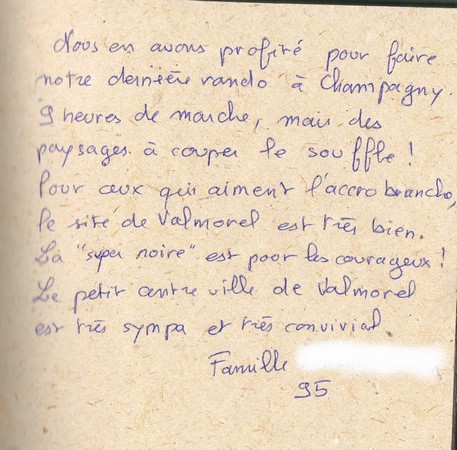 Nous en avons profité pour faire
notre dernière rando à Champagny.
9 heures de marche, mais des
paysages à couper le souffle !
Pour ceux qui aiment l'accrobranche,
le site de Valmorel est très bien.
La "super noire" est pour les courageux !
Le petit centre ville de Valmorel
est très sympa et très convivial.
Famille
95